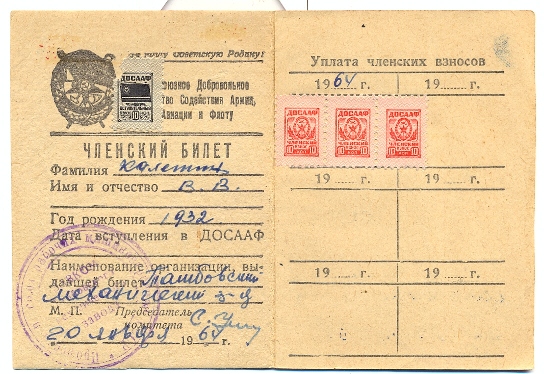 За нашу Советскую Родину!
ДОСААФ
ВСТУПИТЕЛЬНЫЙ
10
Всесоюзное Добровольное
Общество Содействия Армии,
Авиации и Флоту
ЧЛЕНСКИЙ БИЛЕТ
Фамилия
Имя и отчество В. В.
Год рождения 1932
Дата вступления в ДОСААФ
Наименование организации, вы-
давшей билет
механический з-д
М. П. Председатель
комитета
20 января 1964 г.
Уплата членских взносов
1964 г. 19 г.
ДОСААФ ДОСААФ ДОСААФ
ЧЛЕНСКИЙ ЧЛЕНСКИЙ ЧЛЕНСКИЙ
10 10 10
19 г. 19 г.
19 г. 19 г.